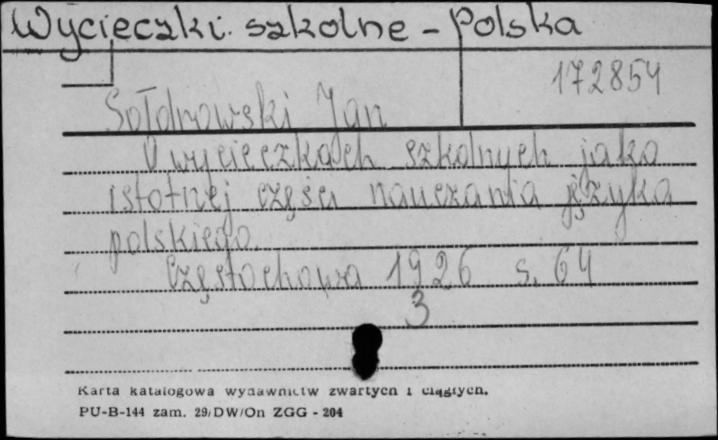 Wycieczki szkolne - Polska
172854
Sołdrowski Jan
O wycieczkach szkolnych jako
istotnej części nauczania języka
polskiego.
Częstochowa 1926 s. 64
3
Karta katalogowa wydawnictw zwartych i ciągłych.
PU-B-144 zam. 29/DW/On ZGG - 204